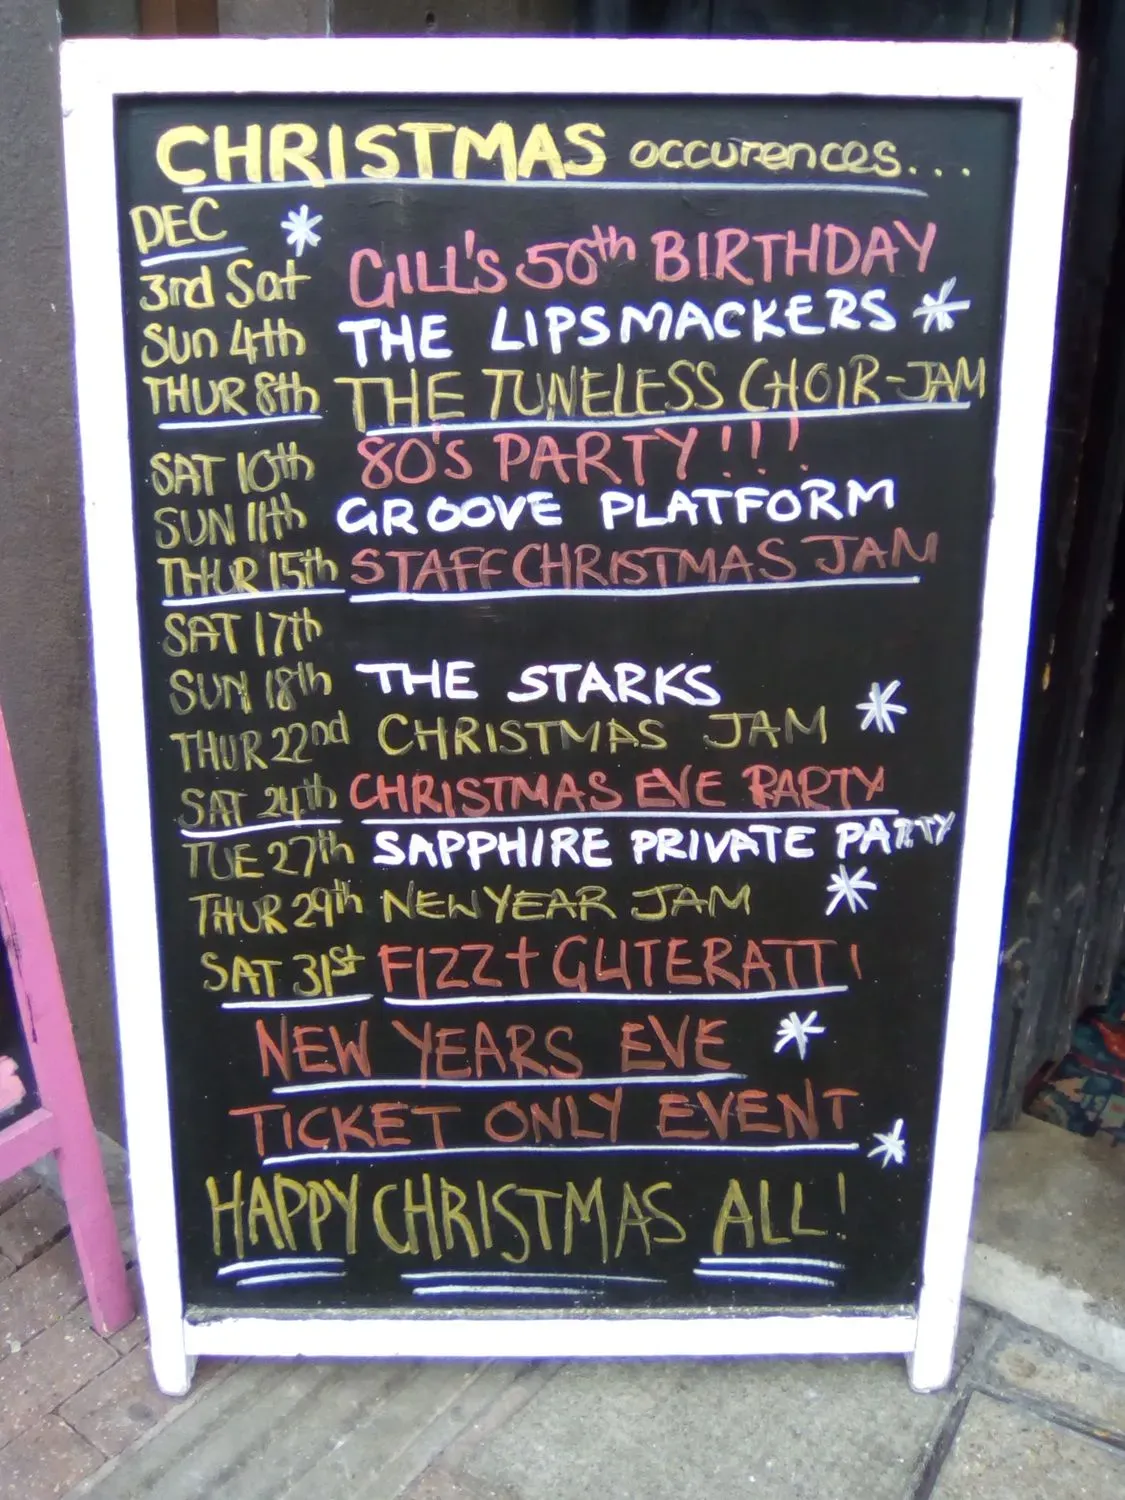 CHRISTMAS occurences...
DEC
3rd Sat GILL'S 50th BIRTHDAY
Sun 4th THE LIPSMACKERS
THUR 8th THE TUNELESS CHOIR-JAM
SAT 10th 80'S PARTY!!!
SUN 11th GROOVE PLATFORM
THUR 15th STAFF CHRISTMAS JAM
SAT 17th
SUN 18th THE STARKS
THUR 22nd CHRISTMAS JAM
SAT 24th CHRISTMAS EVE PARTY
TUE 27th SAPPHIRE PRIVATE PARTY
THUR 29th NEW YEAR JAM
SAT 31st FIZZ + GLITERATTI
NEW YEARS EVE
TICKET ONLY EVENT
HAPPY CHRISTMAS ALL!